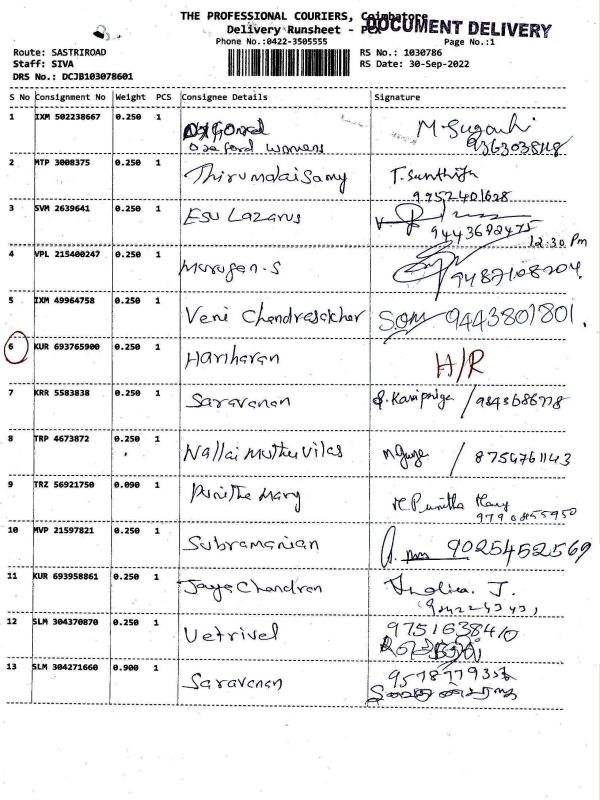 THE PROFESSIONAL COURIERS, Coimbatore
DOCUMENT DELIVERY
Delivery Runsheet - PCX
Phone No.:0422-3505555
Page No.:1
Route: SASTRIROAD
RS No.: 1030786
Staff: SIVA
RS Date: 30-Sep-2022
DRS No.: DCJB103078601
S No Consignment No Weight PCS Consignee Details Signature
1 IXM 502238667 0.250 1
Oxford womens
2 MTP 3008375 0.250 1 Thirumalaisamy T. Santhiya
9952401628
3 SVM 2639641 0.250 1 Esu Lazarus
9443692475
12:30 Pm
4 VPL 215400247 0.250 1 Murugan.S 9487108204
5 IXM 49964758 0.250 1 Veni Chandrasekhar 9443801801.
6 KUR 693765900 0.250 1 Hariharan H/R
7 KRR 5583838 0.250 1 Saravanan / 9843686778
8 TRP 4673872 0.250 1 Nallai Muthu Vilas / 8754761143
9 TRZ 56921750 0.090 1 Punitha Mary M. Punitha Mary
9790855950
10 MVP 21597821 0.250 1 Subramanian 9025452569
11 KUR 693958861 0.250 1 Jaya Chandran
12 SLM 304370870 0.250 1 Vetrivel 9751638410
13 SLM 304271660 0.900 1 Saravanan